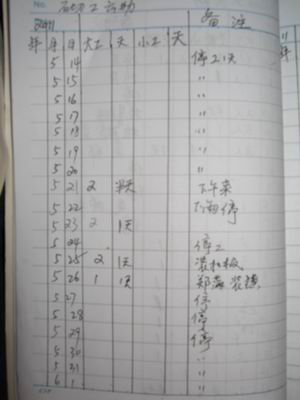 No.
2011 备注
年 月 日 大工 天 小工 天
5 14 停工1天
5 15 〃
5 16 〃
5 17 〃
5 18 〃
5 19 〃
5 20 〃
5 21 2 半天 下午来
5 22 停
5 23 2 1天
5 24 停工
5 25 2 1天
5 26 1 1天
5 27 停
5 28 停
5 29 停
5 30 〃
5 31 〃
6 1 〃